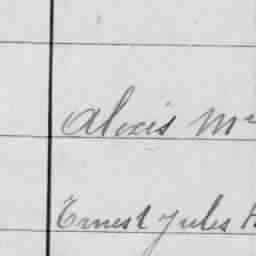 Alexis Mc
Ernest Jules